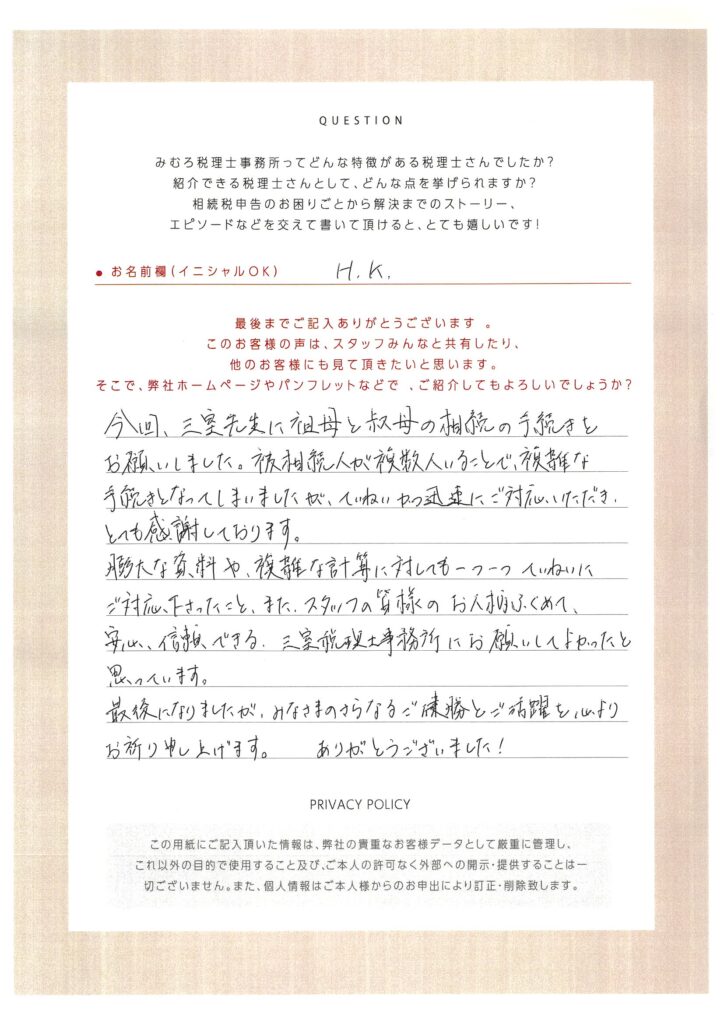 QUESTION
みむろ税理士事務所ってどんな特徴がある税理士さんでしたか？
紹介できる税理士さんとして、どんな点を挙げられますか？
相続税申告のお困りごとから解決までのストーリー、
エピソードなどを交えて書いて頂けると、とても嬉しいです！
● お名前欄（イニシャルOK） H.K.
最後までご記入ありがとうございます 。
このお客様の声は、スタッフみんなと共有したり、
他のお客様にも見て頂きたいと思います。
そこで、弊社ホームページやパンフレットなどで 、ご紹介してもよろしいでしょうか？
今回、三室先生に祖母と叔母の相続の手続きを
お願いしました。被相続人が複数人いることで、複雑な
手続きとなってしまいましたが、ていねいかつ迅速にご対応いただき、
とても感謝しております。
膨大な資料や、複雑な計算に対しても一つ一つていねいに
ご対応下さったこと、また、スタッフの皆様のお人柄ふくめて、
安心、信頼できる、三室税理士事務所にお願いしてよかったと
思っています。
最後になりましたが、みなさまのさらなるご健勝とご活躍を心より
お祈り申し上げます。 ありがとうございました！
PRIVACY POLICY
この用紙にご記入頂いた情報は、弊社の貴重なお客様データとして厳重に管理し、
これ以外の目的で使用すること及び、ご本人の許可なく外部への開示・提供することは一
切ございません。また、個人情報はご本人様からのお申出により訂正・削除致します。